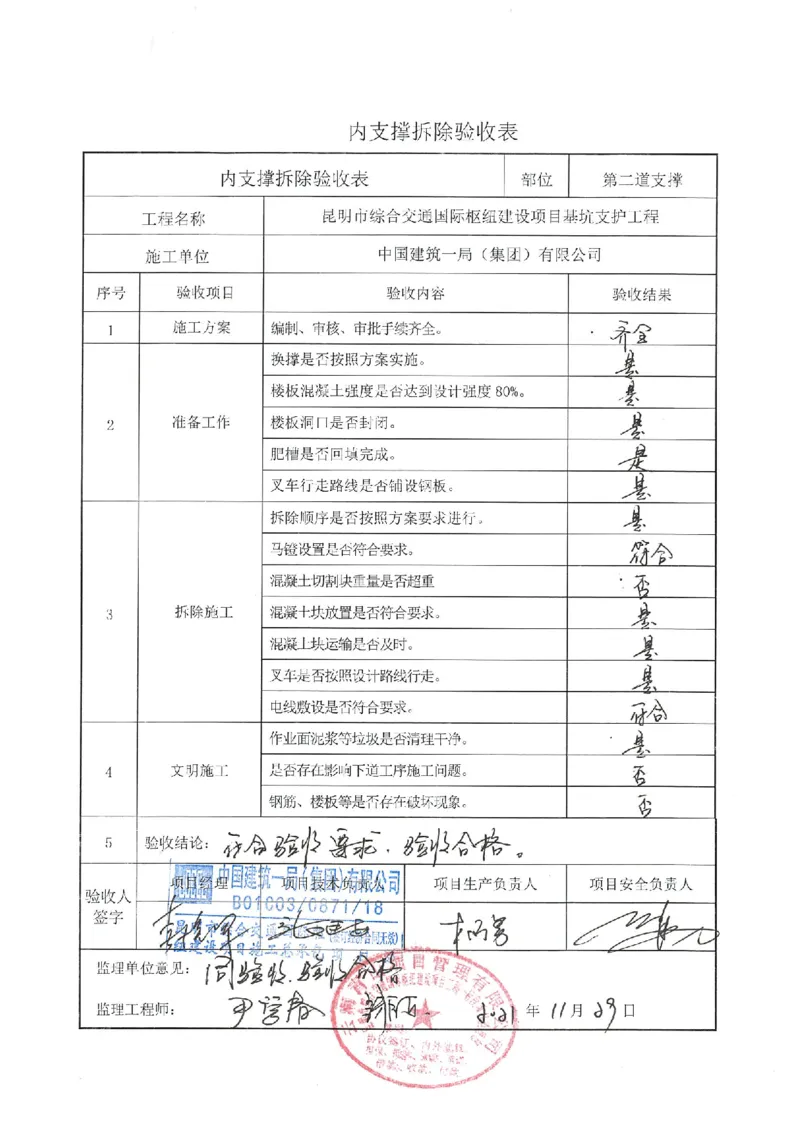 内支撑拆除验收表
内支撑拆除验收表 部位 第二道支撑
工程名称 昆明市综合交通国际枢纽建设项目基坑支护工程
施工单位 中国建筑一局（集团）有限公司
序号 验收项目 验收内容 验收结果
1 施工方案 编制、审核、审批手续齐全。 齐全
换撑是否按照方案实施。 是
楼板混凝土强度是否达到设计强度 80%。 是
2 准备工作 楼板洞口是否封闭。 是
肥槽是否回填完成。 是
叉车行走路线是否铺设钢板。 是
拆除顺序是否按照方案要求进行。 是
马镫设置是否符合要求。 符合
混凝土切割块重量是否超重 否
3 拆除施工 混凝土块放置是否符合要求。 是
混凝土块运输是否及时。 是
叉车是否按照设计路线行走。 是
电线敷设是否符合要求。 符合
作业面泥浆等垃圾是否清理干净。 是
4 文明施工 是否存在影响下道工序施工问题。 否
钢筋、楼板等是否存在破坏现象。 否
5 验收结论：符合验收要求，验收合格。
验收人签字 项目经理 项目技术负责人 项目生产负责人 项目安全负责人
中国建筑一局(集团)有限公司
B01003/0871/18
监理单位意见：同验收，验收合格
监理工程师： 2021 年 11 月 29 日